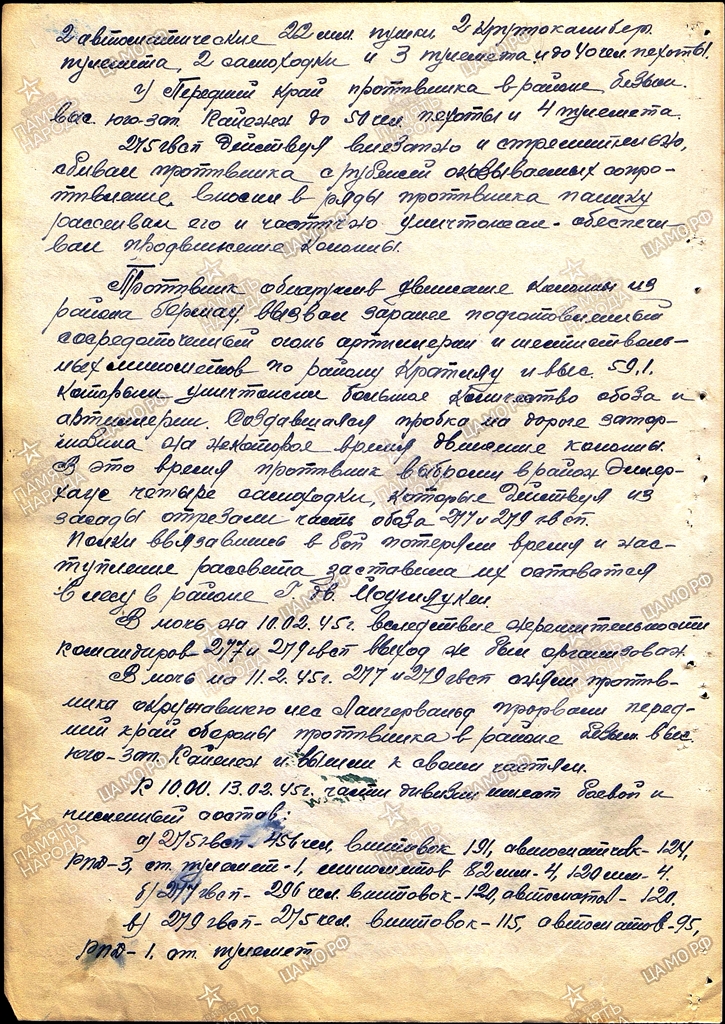 2 автоматические 22 мм. пушки, 2 крупнокалибер.
пулемета, 2 самоходки и 3 пулемета и до 40 чел. пехоты.
г) Передний край противника в районе безым.
выс. юго-зап. Кайенен до 50 чел. пехоты и 4 пулемета.
275 гвсп действуя внезапно и стремительно,
сбивал противника с рубежей оказываемых сопро-
тивление, вносил в ряды противника панику
рассеивал его и частично уничтожал - обеспечи-
вал продвижение колонны.
Противник обнаружив движение колонны из
района Гермау, вызвал заранее подготовленный
сосредоточенный огонь артиллерии и шестистволь-
ных минометов по району Кратлау и выс. 59,1.
которым уничтожил большое количество обоза и
артиллерии. Создавшаяся пробка на дороге затор-
мозила на некоторое время движение колонны.
В это время противник выбросил в район
хаус четыре самоходки, которые действуя из
засады отрезали часть обоза 277 и 279 гвсп.
Полки ввязавшись в бой потеряли время и нас-
тупление рассвета заставило их остаться
в лесу в районе Г. дв.
В ночь на 10.02.45г. вследствие нерешительности
командиров 277 и 279 гвсп выход не был организован.
В ночь на 11.2.45г. 277 и 279 гвсп смяли против-
ника окружавшего лес Лангервальд прорвали перед-
ний край обороны противника в районе безым. выс.
юго-зап. Кайенен и вышли к своим частям.
К 10.00. 13.02.45г. части дивизии имеют боевой и
численный состав:
а) 275 гвсп - 456 чел, винтовок 191, автоматов - 124,
РПД - 3, ст. пулемет - 1, минометов 82 мм - 4, 120 мм - 4.
б) 277 гвсп - 296 чел. винтовок - 120, автоматов - 120.
в) 279 гвсп - 275 чел. винтовок - 115, автоматов - 95,
РПД - 1. ст. пулемет